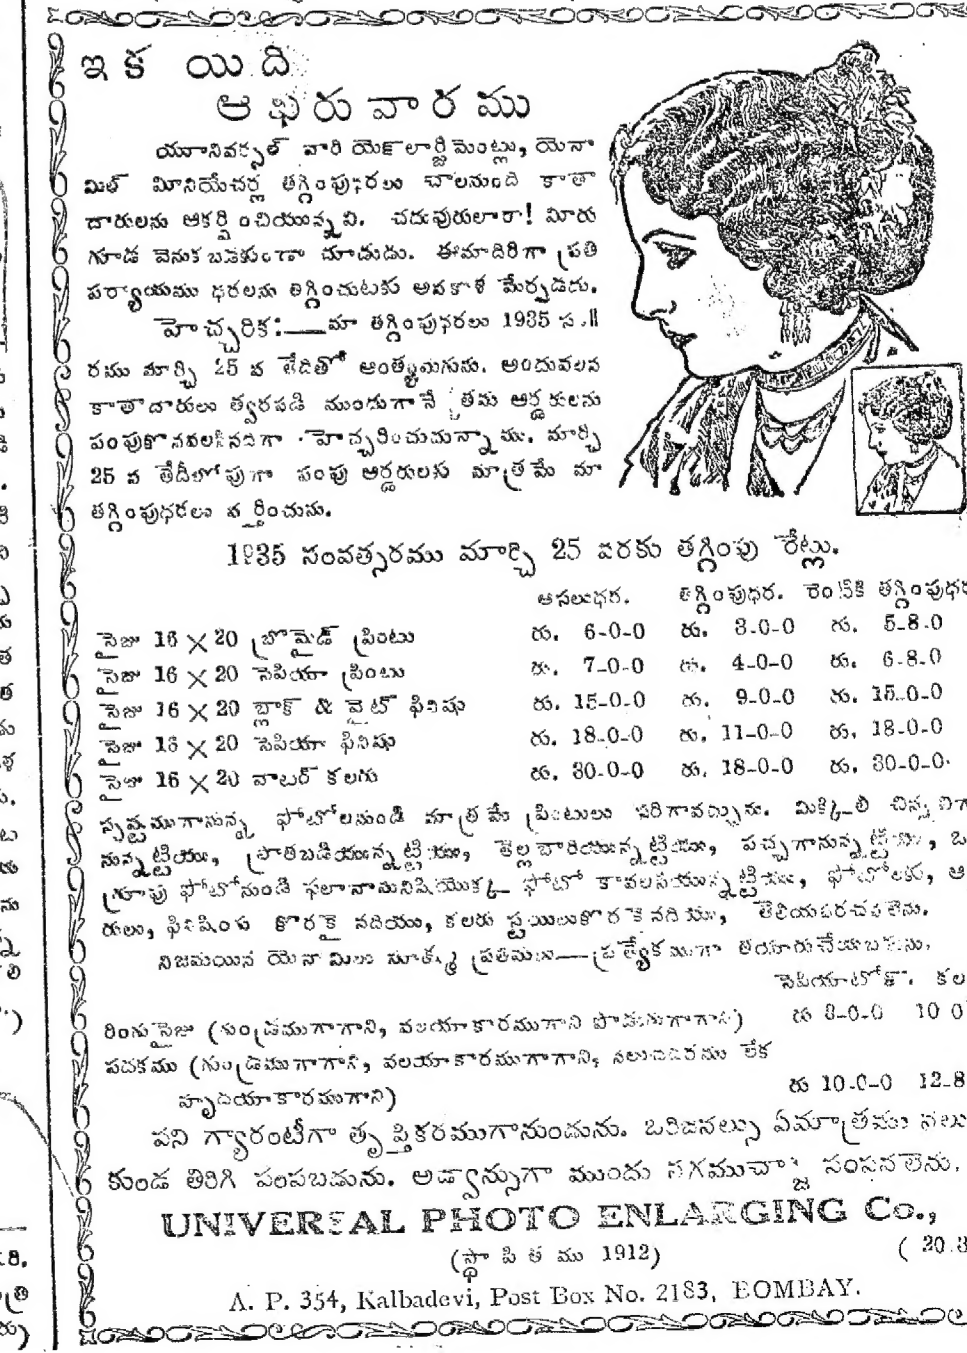 ఇక యిది
ఆఖరువారము
యూనివర్సల్ వారి యెన్‌లార్జిమెంట్లు, యెనా
మిల్ మీనియేచర్ల తగ్గింపుధరలు చాలనుంది కాతా
దారులను ఆకర్షించియున్నవి. చదువరులారా! మీరు
గూడ వెనుకబడకుండా చూడుదు. ఈమాదిరిగా ప్రతి
పర్యాయము ధరలను తగ్గించుటకు అవకాశ మేర్పడదు.
హెచ్చరిక:—మా తగ్గింపుధరలు 1935 స॥
రము మార్చి 25 వ తేదితో ఆంత్యమగును. అందువలన
కాతాదారులు త్వరపడి ముందుగానే తమ ఆర్డరులను
పంపుకొనవలసినదిగా హెచ్చరించుచున్నాము. మార్చి
25 వ తేదీలోపుగా పంపు ఆర్డరులకు మాత్రమే మా
తగ్గింపుధరలు వర్తించును.
1935 సంవత్సరము మార్చి 25 వరకు తగ్గింపు రేట్లు.
అసలుధర. తగ్గింపుధర. రెంటికి తగ్గింపుధర
సైజు 16 × 20 బ్రొమైడ్ ప్రింటు రు. 6-0-0 రు. 3-0-0 రు. 5-8-0
సైజు 16 × 20 సెపియా ప్రింటు రు. 7-0-0 రు. 4-0-0 రు. 6-8-0
సైజు 16 × 20 బ్లాక్ & వైట్ ఫినిషు రు. 15-0-0 రు. 9-0-0 రు. 15-0-0
సైజు 16 × 20 సెపియా ఫినిషు రు. 18-0-0 రు. 11-0-0 రు. 18-0-0
సైజు 16 × 20 వాటర్ కలరు రు. 30-0-0 రు. 18-0-0 రు. 30-0-0
స్పష్టముగానున్న ఫోటోలనుండి మాత్రమే ప్రింటులు సరిగావచ్చును. మిక్కిలి చిన్నవిగా
నున్నట్టియు, ప్రాతబడియున్నట్టియు, తెల్లబారియున్నట్టియు, పచ్చగానున్నట్టియు, ఒ
గ్రూపు ఫోటోనుండి ఫలానామనిషియొక్క ఫోటో కావలసియున్నట్టియు, ఫోటోలకు, ఆ
రులు, ఫినిషింగు కొరకై నదియు, కలరు స్టయిలుకొరకైనదియు, తెలియపరచవలెను.
నిజమయిన యెనామిలు సూక్ష్మ ప్రతిమలు—ప్రత్యేకముగా తయారుచేయబడును.
సెపియాటోన్. కల
రింగుసైజు (గుండ్రముగాగాని, వలయాకారముగాని పొడుగుగాగాని) రు 8-0-0 10 0
పదకము (గుండ్రముగాగాని, వలయాకారముగాగాని, నలుచదరము లేక
హృదయాకారముగాని) రు 10-0-0 12-8
పని గ్యారంటీగా తృప్తికరముగానుండును. ఒరిజనల్సు ఏమాత్రము నలు
కుండ తిరిగి పంపబడును. అడ్వాన్సుగా ముందు సగముచార్జి పంపవలెను.
UNIVERSAL PHOTO ENLARGING Co.,
(స్థాపితము 1912) ( 20.3
A. P. 354, Kalbadevi, Post Box No. 2183, BOMBAY.